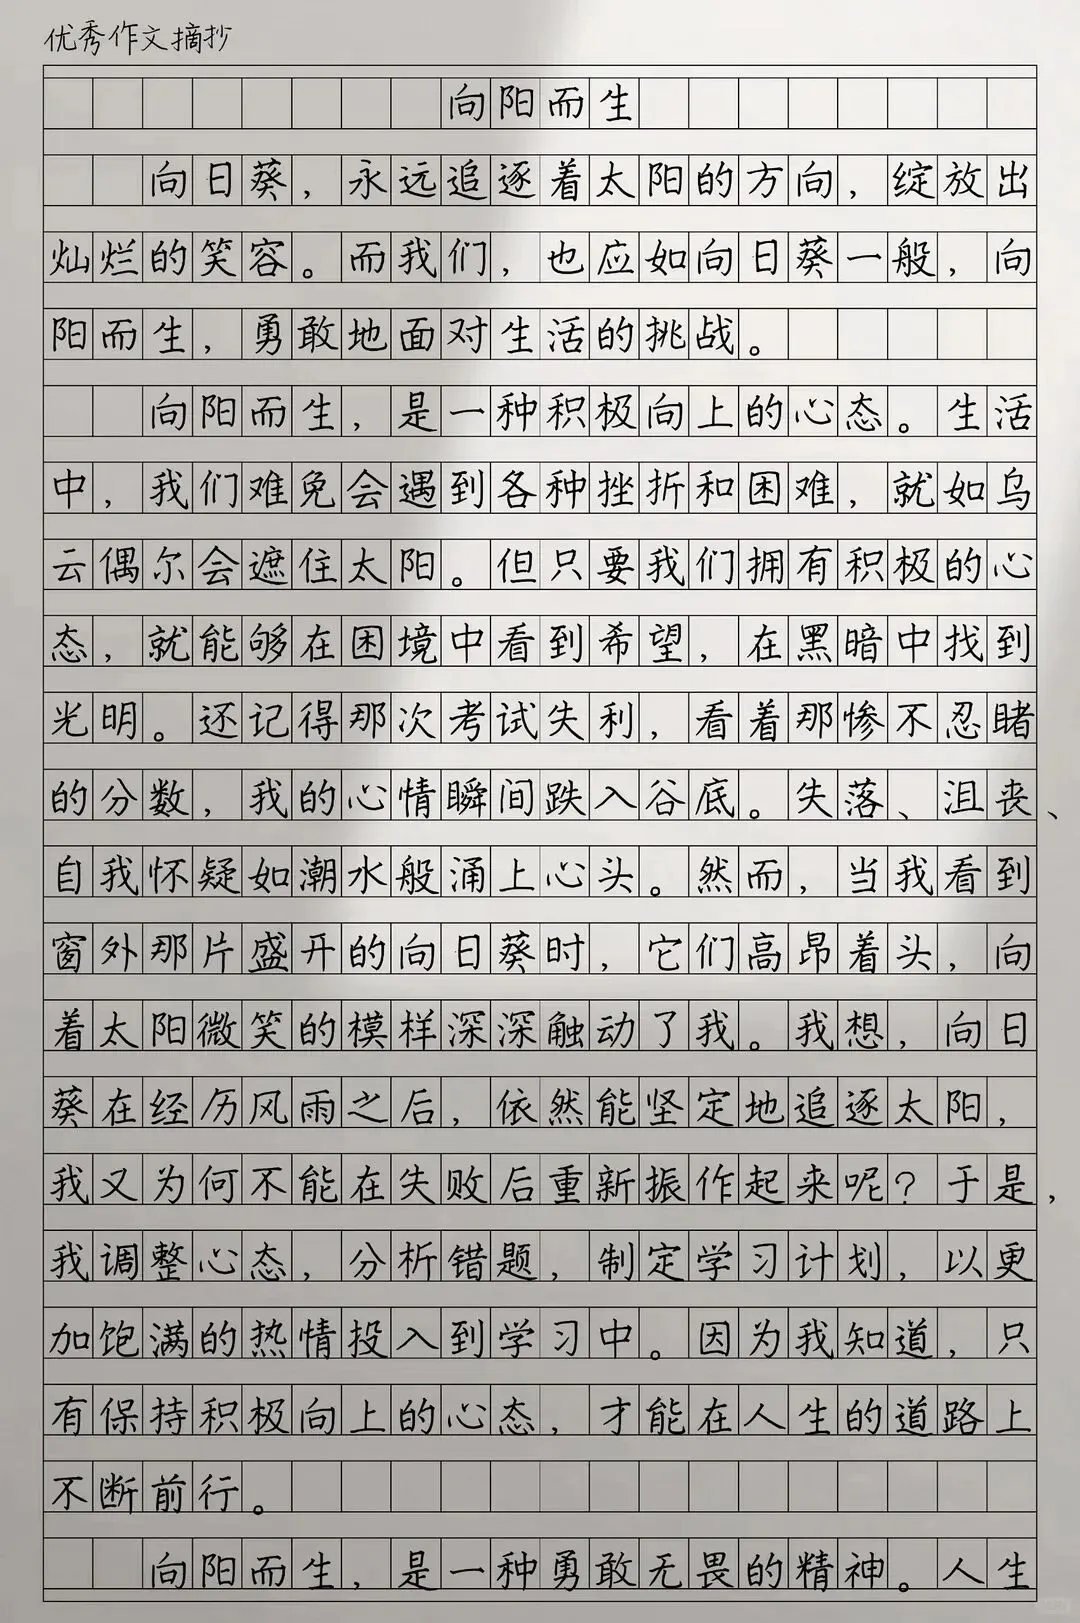 优秀作文摘抄
向阳而生
向日葵，永远追逐着太阳的方向，绽放出
灿烂的笑容。而我们，也应如向日葵一般，向
阳而生，勇敢地面对生活的挑战。
向阳而生，是一种积极向上的心态。生活
中，我们难免会遇到各种挫折和困难，就如乌
云偶尔会遮住太阳。但只要我们拥有积极的心
态，就能够在困境中看到希望，在黑暗中找到
光明。还记得那次考试失利，看着那惨不忍睹
的分数，我的心情瞬间跌入谷底。失落、沮丧、
自我怀疑如潮水般涌上心头。然而，当我看到
窗外那片盛开的向日葵时，它们高昂着头，向
着太阳微笑的模样深深触动了我。我想，向日
葵在经历风雨之后，依然能坚定地追逐太阳，
我又为何不能在失败后重新振作起来呢？于是，
我调整心态，分析错题，制定学习计划，以更
加饱满的热情投入到学习中。因为我知道，只
有保持积极向上的心态，才能在人生的道路上
不断前行。
向阳而生，是一种勇敢无畏的精神。人生